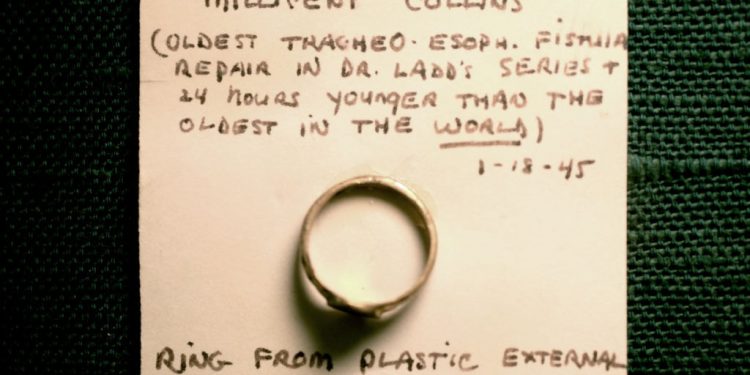 MILLICENT COLLINS
(OLDEST TRACHEO-ESOPH. FISTULA
REPAIR IN DR. LADD'S SERIES +
24 HOURS YOUNGER THAN THE
OLDEST IN THE WORLD)
1-18-45
RING FROM PLASTIC EXTERNAL